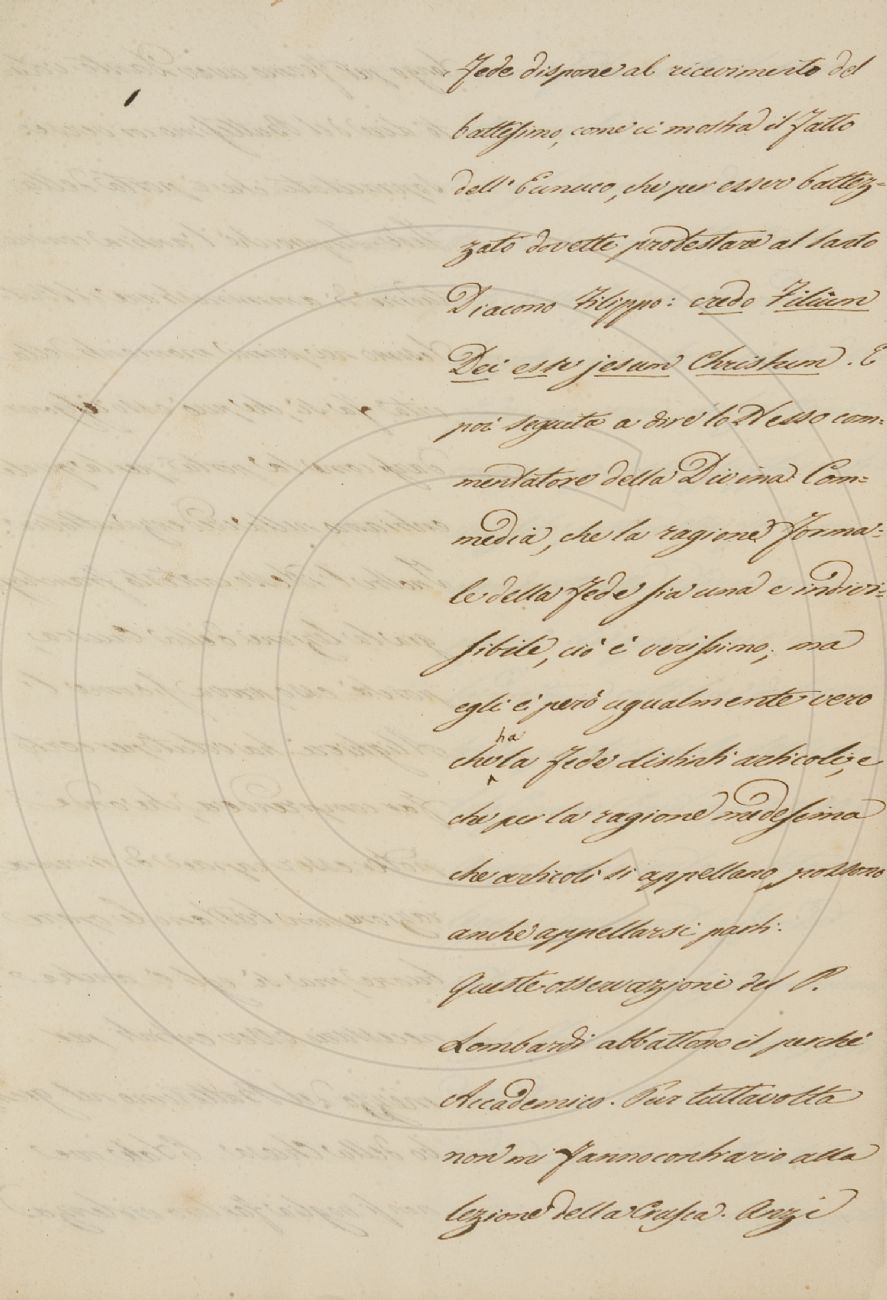 Fede dispone al ricevimento del
battesimo, come ci mostra il fatto
dell' Eunuco, che per esser battez-
zato dovette protestare al santo
Diacono Filippo: credo Filium
Dei esse jesum Christum. E
poi seguita a dire lo stesso com-
mentatore della Divina Com-
media, che la ragione forma-
le della Fede sia una e indivi-
sibile, ciò è verissimo; ma
egli è però ugualmente vero
che ha la Fede distinti articoli, e
che per la ragione medesima
che articoli si appellano, possono
anche appellarsi parti.
Queste osservazioni del P.
Lombardi abbattono il perchè
Accademico. Pur tuttavolta
non mi fanno contrario alla
lezione della Crusca. Anzi